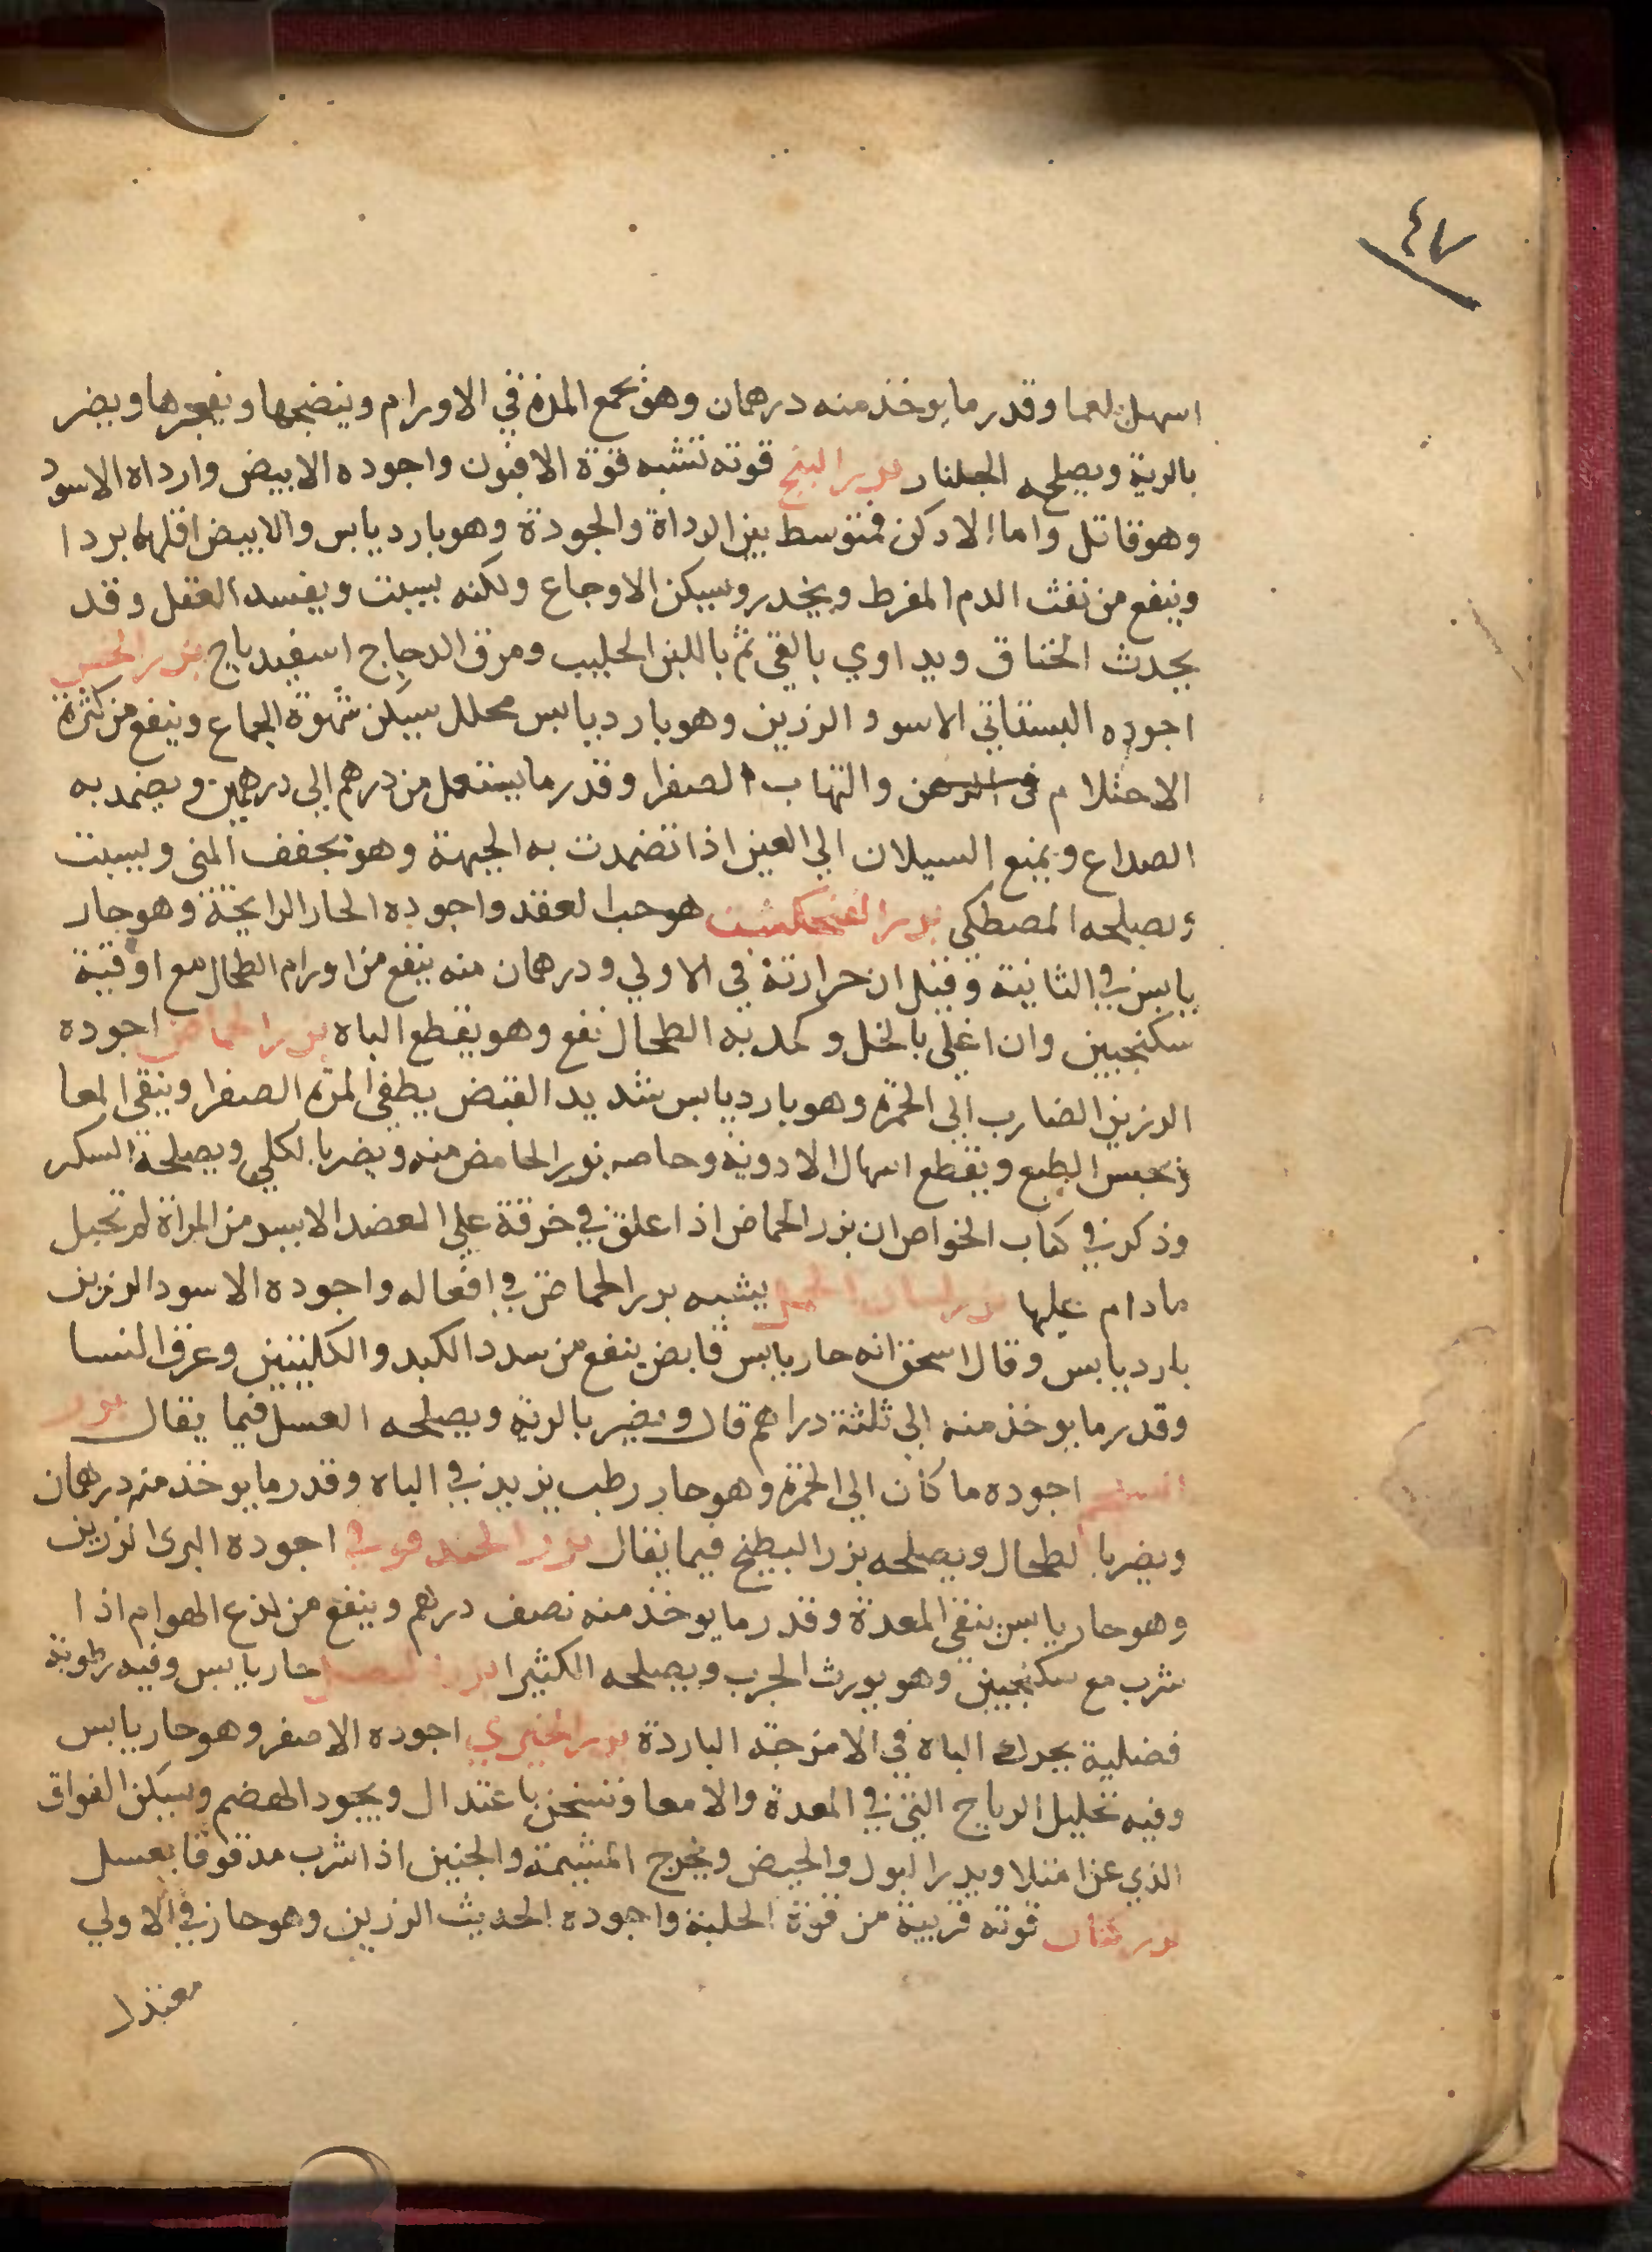 ٤٧
اسهل بلغما وقدر ما يوخذ منه درهمان وهو يجمع المدة في الاورام وينضجها ويفجرها ويضر
بالرية ويصلحه الجلنار بزر البنج قوته تشبه قوة الافيون واجوده الابيض وارداه الاسود
وهو قاتل واما الادكن فمتوسط بين الرداة والجودة وهو بارد يابس والابيض اقلها بردا
وينفع من نفث الدم المفرط ويخدر ويسكن الاوجاع ولكنه يسبت ويفسد العقل وقد
يحدث الخناق ويداوي بالقي ثم باللبن الحليب ومرق الدجاج اسفيدباج بزر الخس
اجوده البستاني الاسود الرزين وهو بارد يابس محلل يسكن شهوة الجماع وينفع من كثرة
الاحتلام والتهاب الصفرا وقدر ما يستعمل من درهم الي درهمين ويضمد به
الصداع ويمنع السيلان الي العين اذا تضمدت به الجبهة وهو يجفف المني ويسبت
ويصلحه المصطكي بزر الفنجكشت هو حب الفقد واجوده الحار الرايحة وهو حار
يابس في الثانية وقيل ان حرارته في الاولي ودرهمان منه ينفع من اورام الطحال مع اوقية
سكنجبين وان اغلي بالخل وكمد به الطحال نفع وهو يقطع الباه بزر الحماض اجوده
الرزين الضارب الي الحمرة وهو بارد يابس شديد القبض يطفي المرة الصفرا وينقي المعا
ويحبس الطبع ويقطع اسهال الادوية وخاصه بزر الحامض منه ويضر بالكلي ويصلحه السكر
وذكر في كتاب الخواص ان بزر الحماض اذا علق في خرقة علي العضد الايسر من المراة لم تحبل
مادام عليها بزر لسان الحمل يشبه بزر الحماض في افعاله واجوده الاسود الرزين
بارد يابس وقال اسحق انه حار يابس قابض ينفع من سدد الكبد والكليتين وعرق النسا
وقدر ما يوخذ منه الي ثلثة دراهم قال ويضر بالرية ويصلحه العسل فيما يقال بزر
اجوده ما كان الي الحمرة وهو حار رطب يزيد في الباه وقدر ما يوخذ منه درهمان
ويضر بالطحال ويصلحه بزر البطيخ فيما يقال بزر الحندقوقي اجوده البري الرزين
وهو حار يابس ينقي المعدة وقدر ما يوخذ منه نصف درهم وينفع من لذع الهوام اذا
شرب مع سكنجبين وهو يورث الجرب ويصلحه الكثيرا بزر البصل حار يابس وفيه رطوبة
فضلية يحرك الباه في الامزجة الباردة بزر الخيري اجوده الاصفر وهو حار يابس
وفيه تحليل الرياح التي في المعدة والامعا وتسخن باعتدال ويجود الهضم ويسكن الفواق
الذي عن امتلا ويدر البول والحيض ويخرج المشيمة والجنين اذا شرب مدقوقا بعسل
بزر كتان قوته قريبة من قوة الحلبة واجوده الحديث الرزين وهو حار في الاولي
معتدل